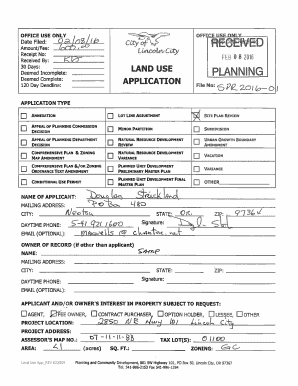 OFFICE USE ONLY
Date Filed: 02/08/16
Amount/Fee:
Receipt No:
Received By:
30 Days:
Deemed Incomplete:
Deemed Complete:
120 Day Deadline:
City of
Lincoln City
LAND USE
APPLICATION
OFFICE USE ONLY
RECEIVED
FEB 08 2016
PLANNING
File No: SPR 2016-01
APPLICATION TYPE
ANNEXATION
LOT LINE ADJUSTMENT
SITE PLAN REVIEW
APPEAL OF PLANNING COMMISSION DECISION
MINOR PARTITION
SUBDIVISION
APPEAL OF PLANNING DEPARTMENT DECISION
NATURAL RESOURCE DEVELOPMENT REVIEW
URBAN GROWTH BOUNDARY AMENDMENT
COMPREHENSIVE PLAN & ZONING MAP AMENDMENT
NATURAL RESOURCE DEVELOPMENT VARIANCE
VACATION
COMPREHENSIVE PLAN &/OR ZONING ORDINANCE TEXT AMENDMENT
PLANNED UNIT DEVELOPMENT PRELIMINARY MASTER PLAN
VARIANCE
CONDITIONAL USE PERMIT
PLANNED UNIT DEVELOPMENT FINAL MASTER PLAN
OTHER
NAME OF APPLICANT: Douglas Strickland
MAILING ADDRESS: PO Box 480
CITY: Neotsu STATE: OR. ZIP: 97364
DAYTIME PHONE: 541.921.1600 Signature:
EMAIL (OPTIONAL):
OWNER OF RECORD (if other than applicant)
NAME: SAME
MAILING ADDRESS:
CITY: STATE: ZIP:
DAYTIME PHONE: Signature:
EMAIL (OPTIONAL):
APPLICANT AND/OR OWNER'S INTEREST IN PROPERTY SUBJECT TO REQUEST:
AGENT, FEE OWNER, CONTRACT PURCHASER, OPTION HOLDER, LESSEE, OTHER
PROJECT LOCATION: 2850 NE Hwy 101 Lincoln City
PROJECT ADDRESS:
ASSESSOR'S MAP NO.: 07-11-11-BB TAX LOT(S): 01100
AREA: <1 (acres) SQ. FT.: ZONING: GC
Planning and Community Development, 801 SW Highway 101, PO Box 50, Lincoln City, OR 97367